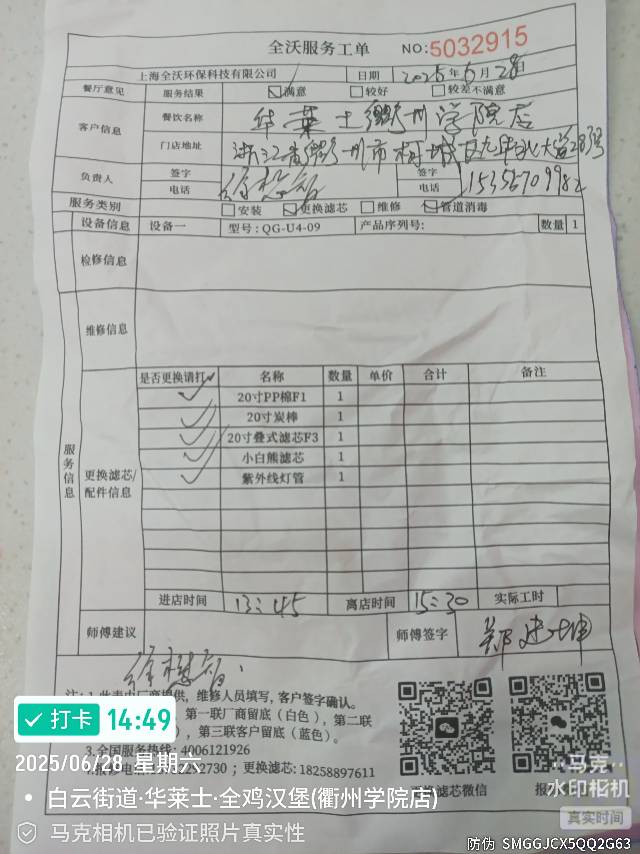 全沃服务工单 NO:5032915
上海全沃环保科技有限公司 日期 2025年6月28日
餐厅意见 服务结果 ☑满意 □较好 □较差不满意
客户信息 餐饮名称 华莱士衢州学院店
门店地址 浙江省衢州市柯城区九华北大道78号
负责人 签字 签字
电话 电话
服务类别 □安装 ☑更换滤芯 □维修 ☑管道消毒
设备信息 设备一 型号:QG-U4-09 产品序列号: 数量 1
检修信息
维修信息
服务信息
更换滤芯/配件信息
是否更换请打✓ 名称 数量 单价 合计 备注
✓ 20寸PP棉F1 1
✓ 20寸炭棒 1
✓ 20寸叠式滤芯F3 1
✓ 小白熊滤芯 1
✓ 紫外线灯管 1
进店时间 13:45 离店时间 15:30 实际工时
师傅建议 师傅签字 郑建坤
注:1.此表由厂商提供,维修人员填写,客户签字确认。
第一联厂商留底(白色),第二联
第三联客户留底(蓝色)。
3.全国服务热线:4006121926
更换滤芯:18258897611
更换滤芯微信
打卡 14:49
2025/06/28 星期六
白云街道·华莱士·全鸡汉堡(衢州学院店)
马克相机已验证照片真实性
马克
水印相机
真实时间
防伪 SMGGJCX5QQ2G63